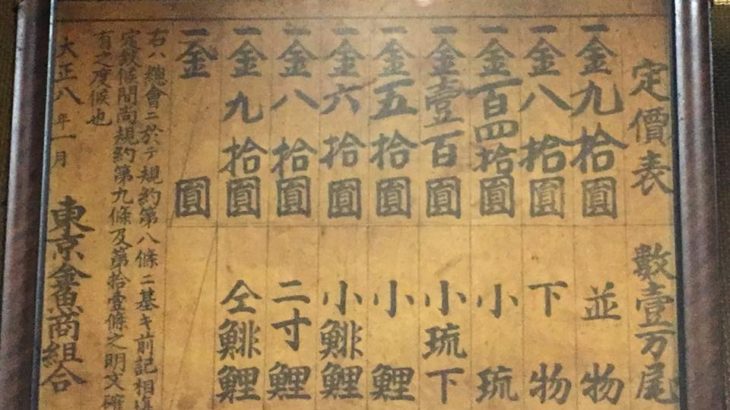 定價表 數壹万尾
一金九拾圓 並物
一金八拾圓 下物
一金百四拾圓 小琉
一金壹百圓 小琉下
一金五拾圓 小鯉
一金六拾圓 小鯡鯉
一金八拾圓 二寸鯉
一金九拾圓 仝鯡鯉
一金 圓
右ハ總會ニ於テ規約第八條ニ基キ前記相違
定致候間尚規約第九條及第拾壹條之明文確
有之度候也
大正八年一月 東京金魚商組合